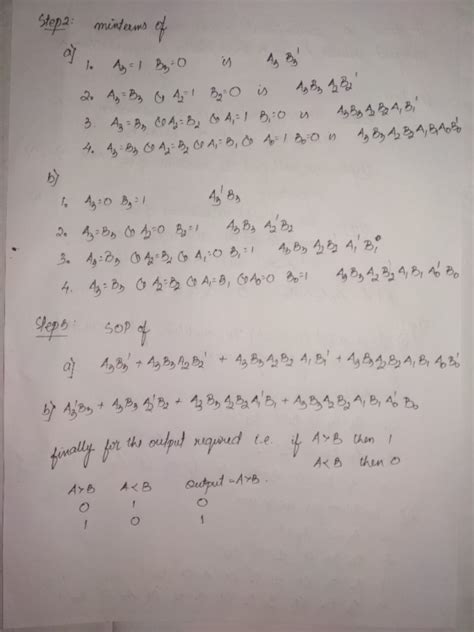 Step2: minterms of
a)
1. A3=1 B3=0 is A3 B3'
2. A3=B3 & A2=1 B2=0 is A3B3 A2B2'
3. A3=B3 & A2=B2 & A1=1 B1=0 is A3B3A2B2A1B1'
4. A3=B3 & A2=B2 & A1=B1 & A0=1 B0=0 is A3B3A2B2A1B1A0B0'
b)
1. A3=0 B3=1 A3'B3
2. A3=B3 & A2=0 B2=1 A3B3 A2'B2
3. A3=B3 & A2=B2 & A1=0 B1=1 A3B3 A2B2 A1'B1
4. A3=B3 & A2=B2 & A1=B1 & A0=0 B0=1 A3B3 A2B2 A1B1 A0'B0
Step3: SOP of
a) A3B3' + A3B3A2B2' + A3B3A2B2 A1B1' + A3B3A2B2A1B1 A0B0'
b) A3'B3 + A3B3 A2'B2 + A3B3A2B2A1'B1 + A3B3A2B2A1B1A0'B0
finally for the output required i.e. if A>B then 1
A<B then 0
A>B A<B Output=A>B.
0 1 0
1 0 1